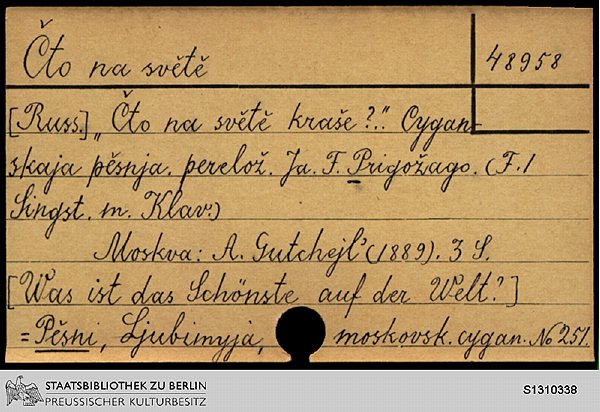 Čto na světě
48958
[Russ.] „Čto na světě kraše?.." Cygan-
skaja pěsnja. perelož. Ja. F. Prigožago. (F. 1
Singst. m. Klav.)
Moskva: A. Gutchejl' (1889). 3 S.
[Was ist das Schönste auf der Welt?]
= Pěsni, Ljubimyja, moskovsk. cygan. No 251.
STAATSBIBLIOTHEK ZU BERLIN
PREUSSISCHER KULTURBESITZ
S1310338